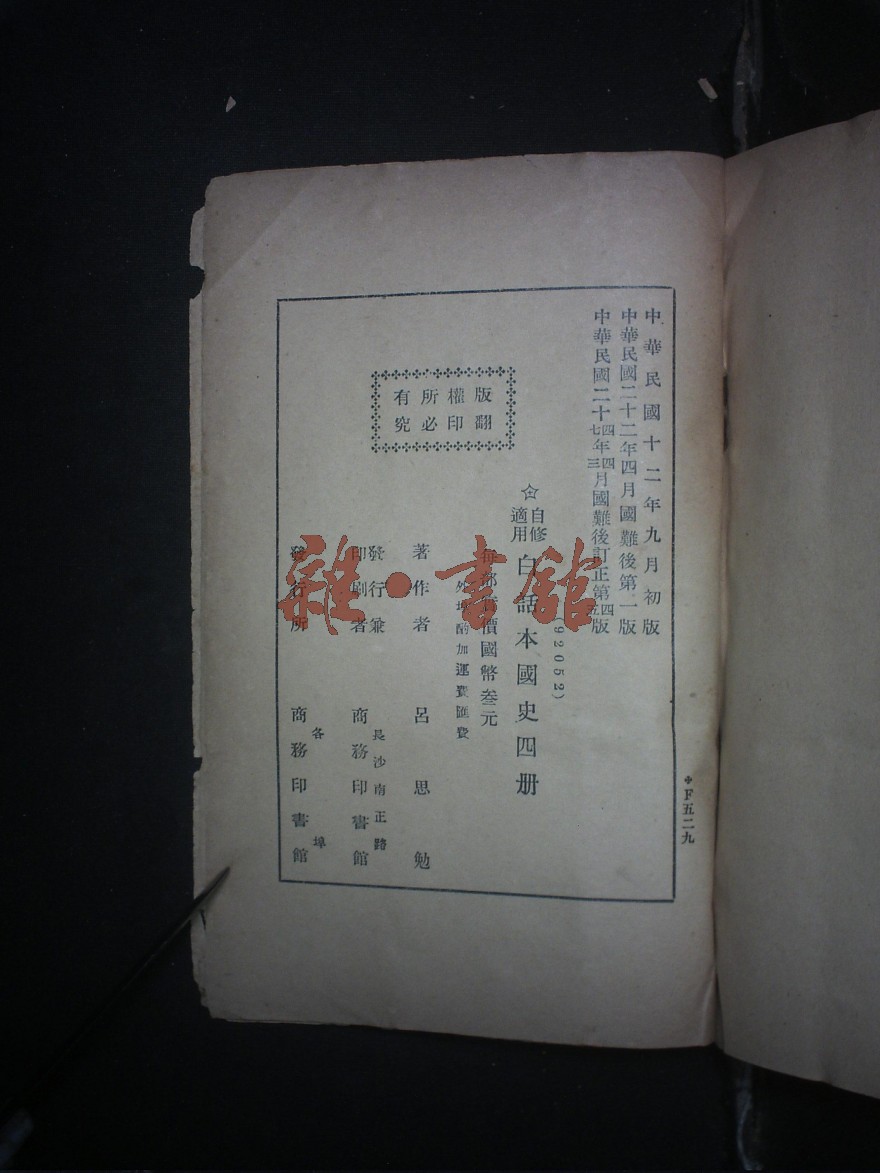 中華民國十二年九月初版
中華民國二十二年四月國難後第一版
中華民國二十四年四月國難後訂正第四版
七三五
(92052)
☆自修適用白話本國史四册
每部實價國幣叁元
外埠酌加運費匯費
版權所有
翻印必究
著作者 呂思勉
發行兼印刷者 長沙南正路 商務印書館
發行所 各埠 商務印書館
F五二九
雜·書館